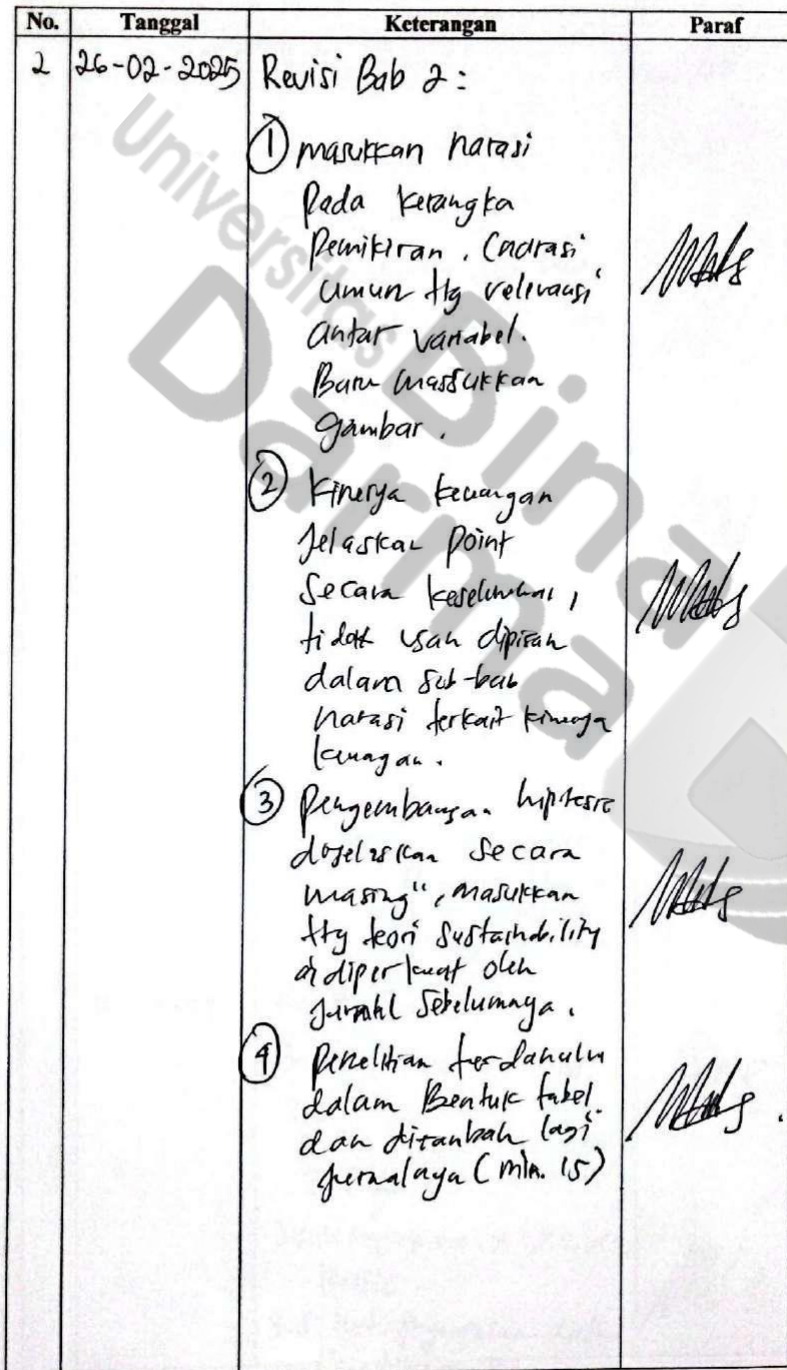 No. Tanggal Keterangan Paraf
2 26-02-2025 Revisi Bab 2 :
① masukkan narasi
pada kerangka
pemikiran. (narasi
umum ttg relevansi
antar variabel.
Baru massukkan
gambar.
② Kinerja keuangan
jelaskan point
secara keseluruhan,
tidak usah dipisah
dalam sub-bab
narasi terkait kinerja
keuagan.
③ pengembangan hipotesis
dijelaskan secara
masing", masukkan
ttg teori sustainability
diperkuat oleh
jurnal sebelumnya.
④ penelitian terdahulu
dalam Bentuk tabel
dan ditambah lagi
jurnalnya (min. 15)
Universitas
Bina
Darma